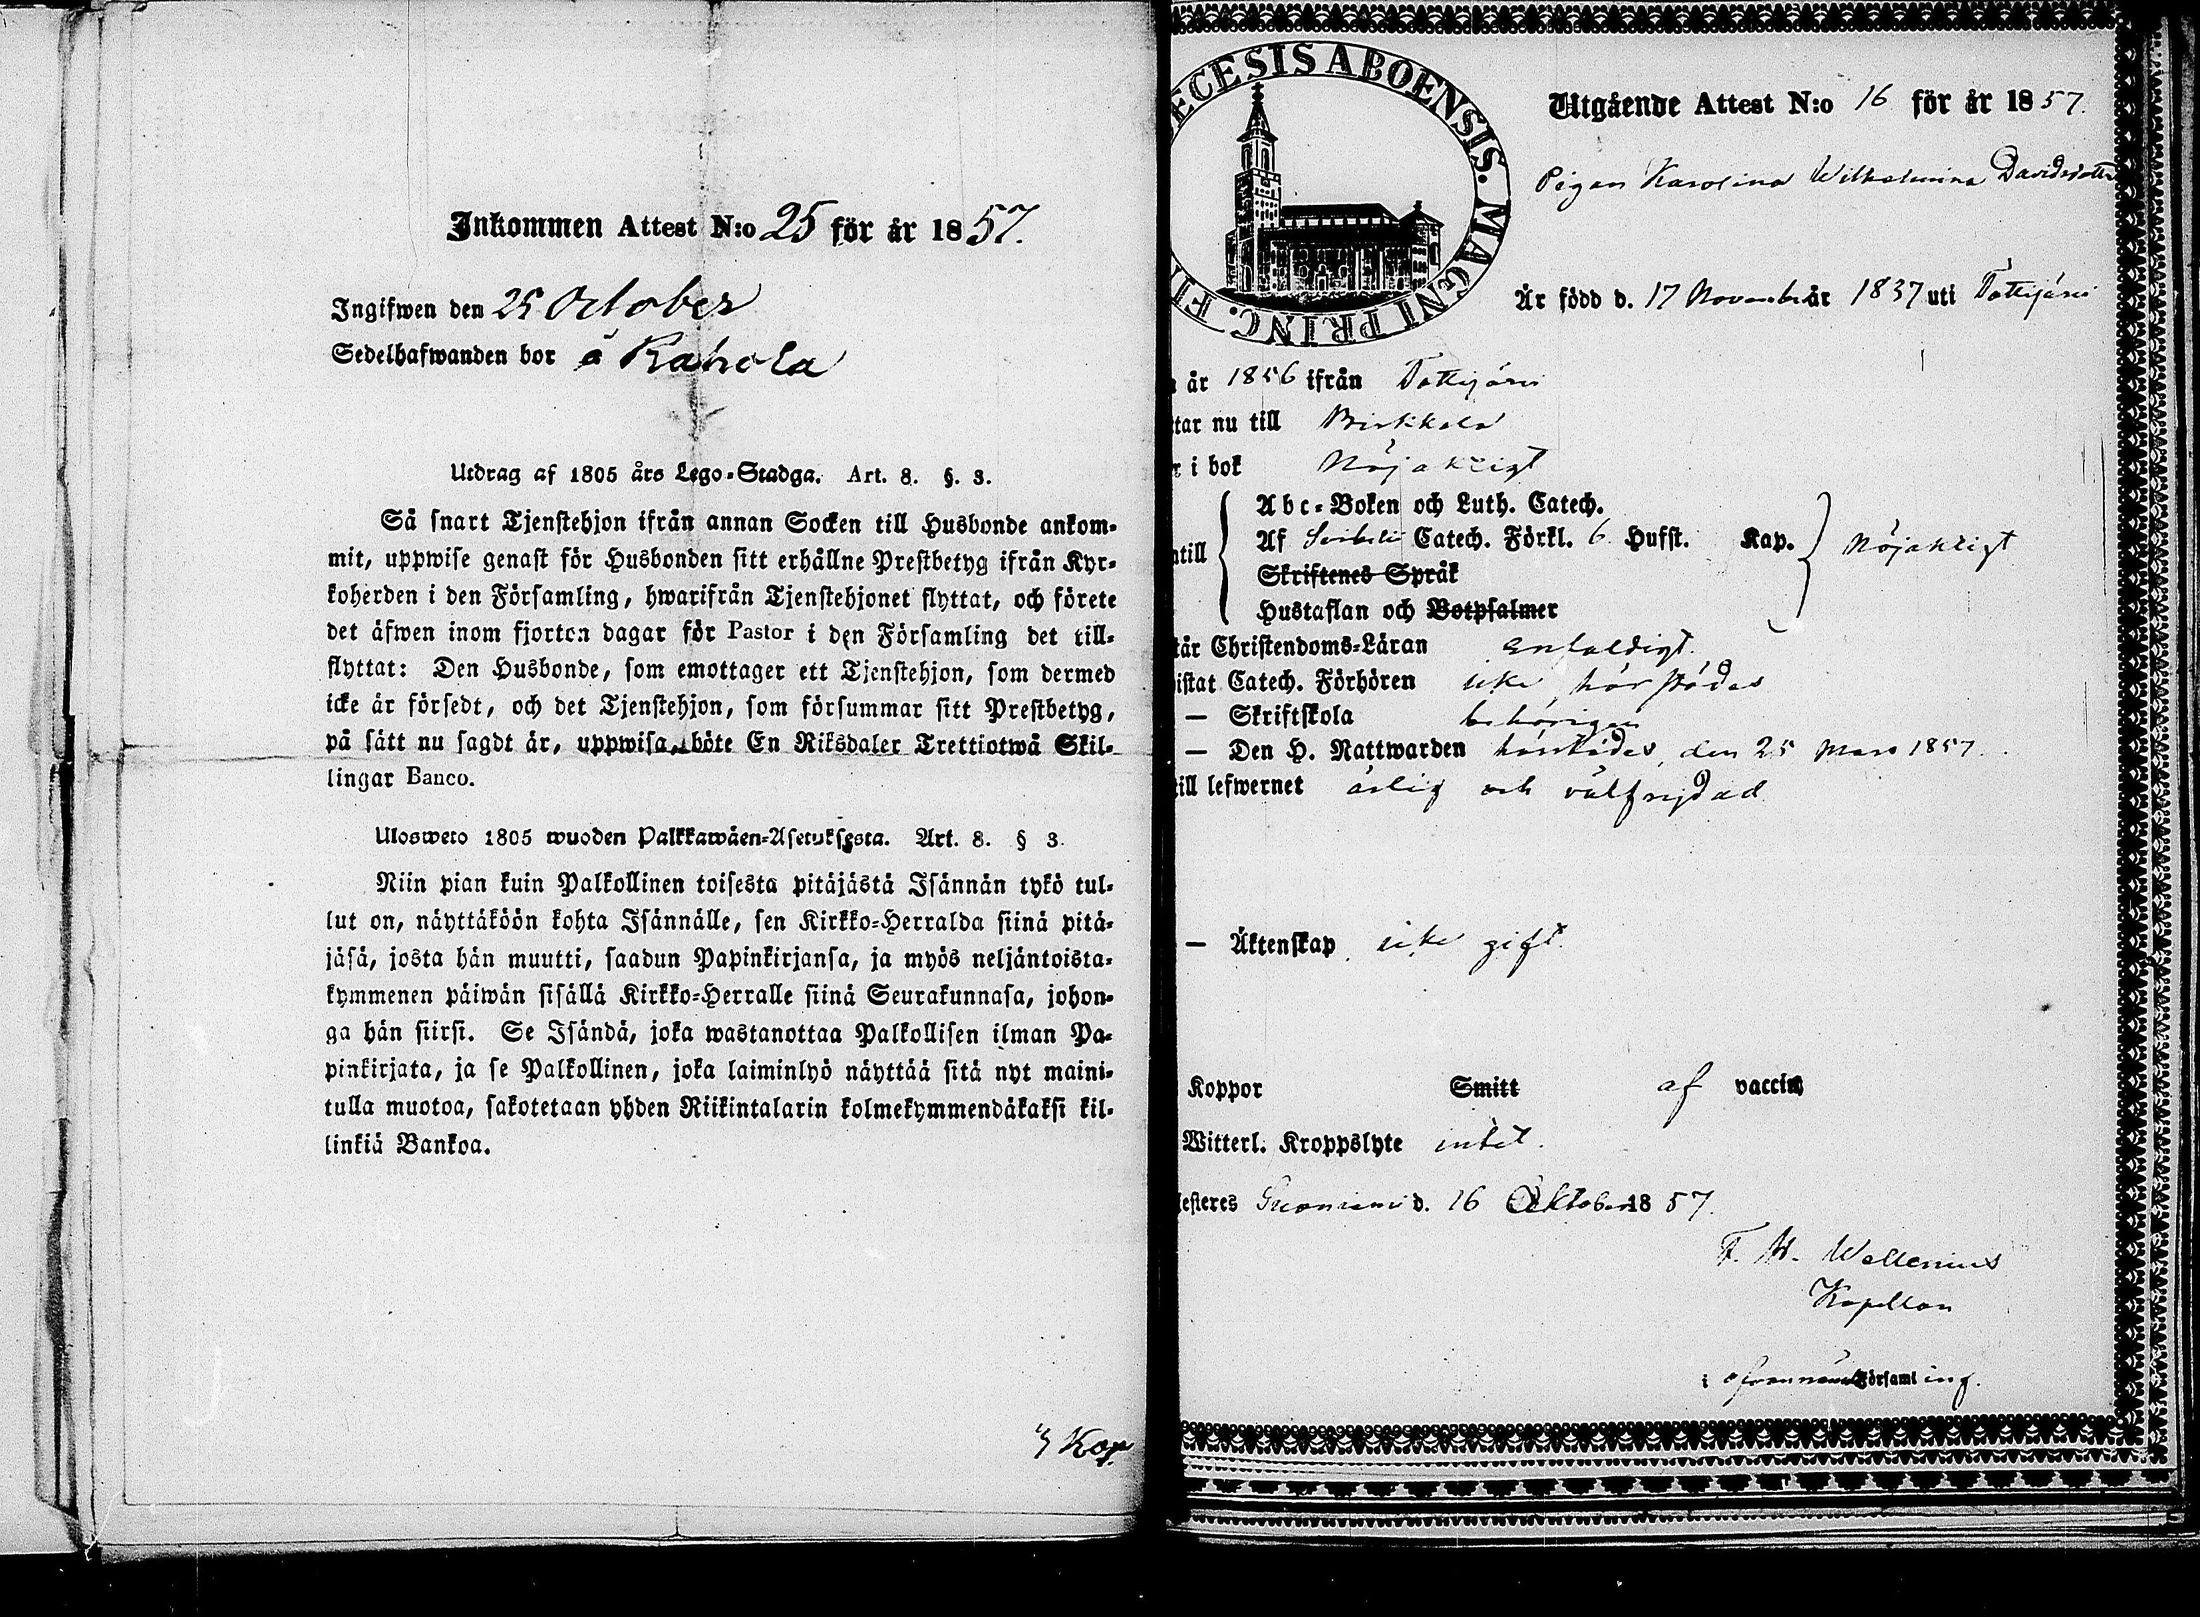 Inkommen Attest N:o 25 för år 1857.
Ingifwen den 25 October
Sedelhafwanden bor å Rahola
Utdrag af 1805 års Lego-Stadga. Art. 8. §. 3.
Så snart Tjenstehjon ifrån annan Socken till Husbonde ankom-
mit, uppwise genast för Husbonden sitt erhållne Prestbetyg ifrån Kyr-
koherden i den Församling, hwarifrån Tjenstehjonet flyttat, och förete
det äfwen inom fjorton dagar för Pastor i den Församling det till-
flyttat: Den Husbonde, som emottager ett Tjenstehjon, som dermed
icke är försedt, och det Tjenstehjon, som försummar sitt Prestbetyg,
på sätt nu sagdt är, uppwisa, böte En Riksdaler Trettiotwå Skil-
lingar Banco.
Ulosweto 1805 wuoden Palkkawäen-Asetuksesta. Art. 8. § 3.
Niin pian kuin Palkollinen toisesta pitäjästä Isännän tykö tul-
lut on, näyttäköön kohta Isännälle, sen Kirkko-Herralda siinä pitä-
jäsä, josta hän muutti, saadun Papinkirjansa, ja myös neljäntoista-
kymmenen päiwän sisällä Kirkko-Herralle siinä Seurakunnasa, johon-
ga hän siirsi. Se Isändä, joka wastanottaa Palkollisen ilman Pa-
pinkirjata, ja se Palkollinen, joka laiminlyö näyttää sitä nyt maini-
tulla muotoa, sakotetaan yhden Riikintalarin kolmekymmendäkaksi kil-
linkiä Bankoa.
3 Kop.
ECESIS ABOENSIS. MAGNI PRINC. FI
Utgående Attest N:o 16 för år 1857.
Pigan Karolina Wilhelmina Davidsdotter
Är född d. 17 November år 1837 uti Tottijärvi
år 1856 ifrån Tottijärvi
tar nu till Birkkala
i bok Nöjaktigt
Abc-Boken och Luth. Catech.
ntill Af Svibelii Catech. Förkl. 6 Hufst. Kap. Nöjaktigt
Skriftenes Språk
Hustaflan och Botpsalmer
tår Christendoms-Läran enfaldigt.
istat Catech. Förhören icke härstädes
— Skriftskola behörigen
— Den H. Nattwarden härstädes, den 25 Mars 1857.
till lefwernet ärlig och välfrejdad
— Äktenskap icke gift.
Koppor Smitt af vaccin
Witterl. Kroppslyte intet.
esteres Suoniemi d. 16 Oktober 1857.
F. W. Wallenius
Kapellan
i ofvannämnde Församling.